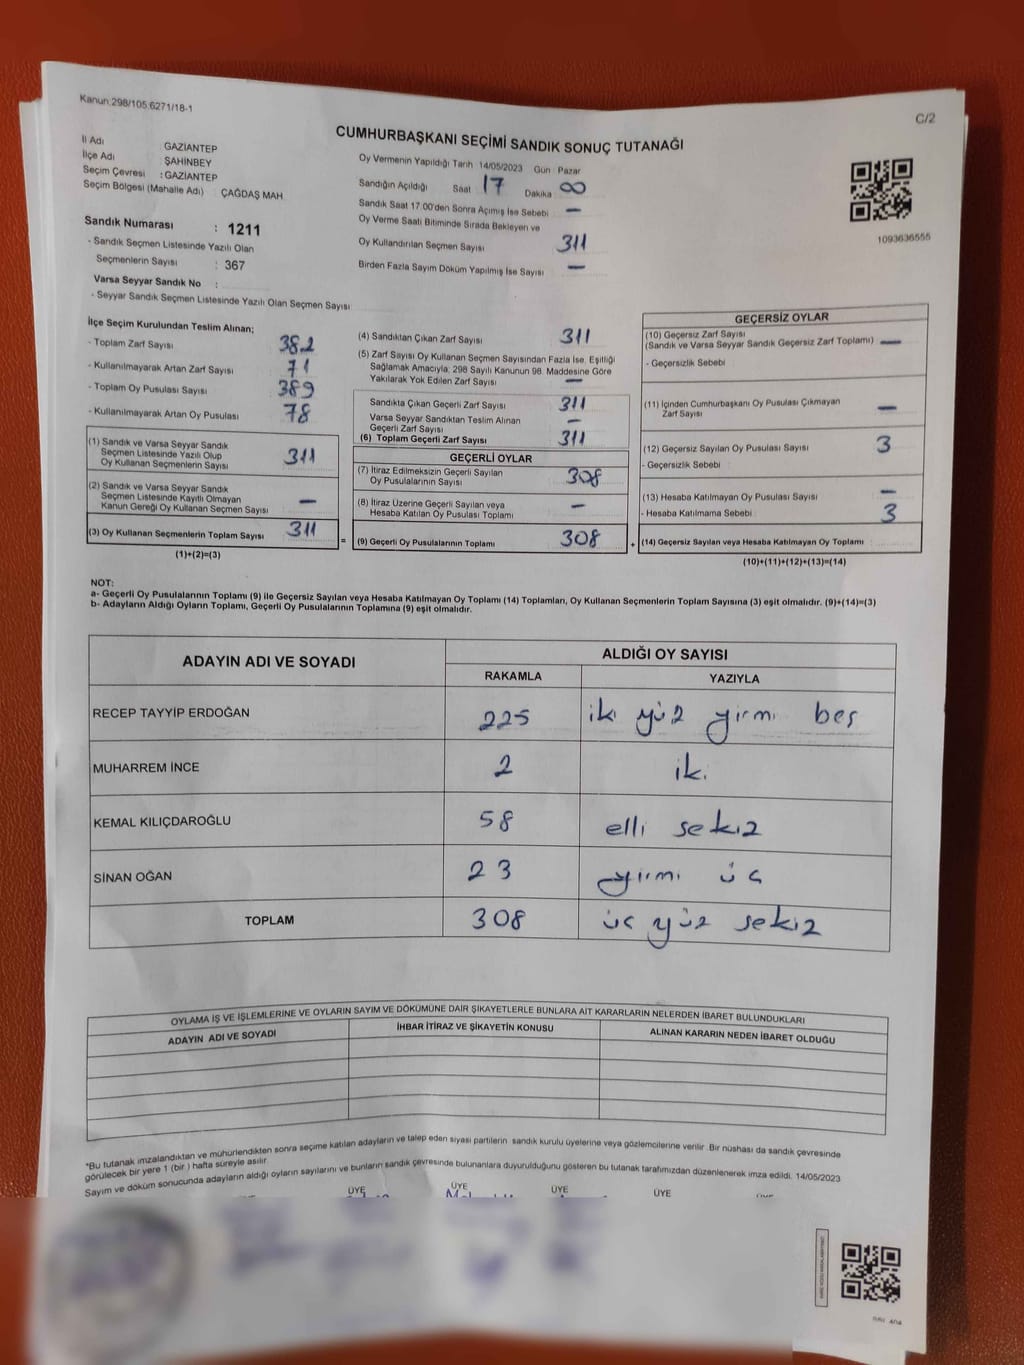 Kanun:298/105,6271/18-1
C/2
CUMHURBAŞKANI SEÇİMİ SANDIK SONUÇ TUTANAĞI
İl Adı : GAZİANTEP
İlçe Adı : ŞAHİNBEY
Seçim Çevresi : GAZİANTEP
Seçim Bölgesi (Mahalle Adı) : ÇAĞDAŞ MAH
Sandık Numarası : 1211
- Sandık Seçmen Listesinde Yazılı Olan
Seçmenlerin Sayısı : 367
Varsa Seyyar Sandık No :
- Seyyar Sandık Seçmen Listesinde Yazılı Olan Seçmen Sayısı
Oy Vermenin Yapıldığı Tarih 14/05/2023 Gün Pazar
Sandığın Açıldığı Saat 17 Dakika 00
Sandık Saat 17.00'den Sonra Açımış İse Sebebi —
Oy Verme Saati Bitiminde Sırada Bekleyen ve
Oy Kullandırılan Seçmen Sayısı 311
Birden Fazla Sayım Döküm Yapılmış İse Sayısı —
1093636555
İlçe Seçim Kurulundan Teslim Alınan;
- Toplam Zarf Sayısı 382
- Kullanılmayarak Artan Zarf Sayısı 71
- Toplam Oy Pusulası Sayısı 389
- Kullanılmayarak Artan Oy Pusulası 78
(1) Sandık ve Varsa Seyyar Sandık
Seçmen Listesinde Yazılı Olup
Oy Kullanan Seçmenlerin Sayısı 311
(2) Sandık ve Varsa Seyyar Sandık
Seçmen Listesinde Kayıtlı Olmayan
Kanun Gereği Oy Kullanan Seçmen Sayısı —
(3) Oy Kullanan Seçmenlerin Toplam Sayısı 311 =
(1)+(2)=(3)
(4) Sandıktan Çıkan Zarf Sayısı 311
(5) Zarf Sayısı Oy Kullanan Seçmen Sayısından Fazla İse, Eşitliği
Sağlamak Amacıyla; 298 Sayılı Kanunun 98. Maddesine Göre
Yakılarak Yok Edilen Zarf Sayısı —
Sandıkta Çıkan Geçerli Zarf Sayısı 311
Varsa Seyyar Sandıktan Teslim Alınan
Geçerli Zarf Sayısı —
(6) Toplam Geçerli Zarf Sayısı 311
GEÇERLİ OYLAR
(7) İtiraz Edilmeksizin Geçerli Sayılan
Oy Pusulalarının Sayısı 308
(8) İtiraz Üzerine Geçerli Sayılan veya
Hesaba Katılan Oy Pusulası Toplamı —
(9) Geçerli Oy Pusulalarının Toplamı 308 +
GEÇERSİZ OYLAR
(10) Geçersiz Zarf Sayısı
(Sandık ve Varsa Seyyar Sandık Geçersiz Zarf Toplamı) —
- Geçersizlik Sebebi
(11) İçinden Cumhurbaşkanı Oy Pusulası Çıkmayan
Zarf Sayısı —
(12) Geçersiz Sayılan Oy Pusulası Sayısı 3
- Geçersizlik Sebebi
(13) Hesaba Katılmayan Oy Pusulası Sayısı —
- Hesaba Katılmama Sebebi 3
(14) Geçersiz Sayılan veya Hesaba Katılmayan Oy Toplamı
(10)+(11)+(12)+(13)=(14)
NOT:
a- Geçerli Oy Pusulalarının Toplamı (9) ile Geçersiz Sayılan veya Hesaba Katılmayan Oy Toplamı (14) Toplamları, Oy Kullanan Seçmenlerin Toplam Sayısına (3) eşit olmalıdır. (9)+(14)=(3)
b- Adayların Aldığı Oyların Toplamı, Geçerli Oy Pusulalarının Toplamına (9) eşit olmalıdır.
ADAYIN ADI VE SOYADI ALDIĞI OY SAYISI
RAKAMLA YAZIYLA
RECEP TAYYİP ERDOĞAN 225 iki yüz yirmi beş
MUHARREM İNCE 2 iki
KEMAL KILIÇDAROĞLU 58 elli sekiz
SİNAN OĞAN 23 yirmi üç
TOPLAM 308 üç yüz sekiz
OYLAMA İŞ VE İŞLEMLERİNE VE OYLARIN SAYIM VE DÖKÜMÜNE DAİR ŞİKAYETLERLE BUNLARA AİT KARARLARIN NELERDEN İBARET BULUNDUKLARI
ADAYIN ADI VE SOYADI İHBAR İTİRAZ VE ŞİKAYETİN KONUSU ALINAN KARARIN NEDEN İBARET OLDUĞU
*Bu tutanak imzalandıktan ve mühürlendikten sonra seçime katılan adayların ve talep eden siyasi partilerin sandık kurulu üyelerine veya gözlemcilerine verilir. Bir nüshası da sandık çevresinde
görülecek bir yere 1 (bir) hafta süreyle asılır.
Sayım ve döküm sonucunda adayların aldığı oyların sayılarını ve bunların sandık çevresinde bulunanlara duyurulduğunu gösteren bu tutanak tarafımızdan düzenlenerek imza edildi. 14/05/2023
ÜYE ÜYE ÜYE ÜYE